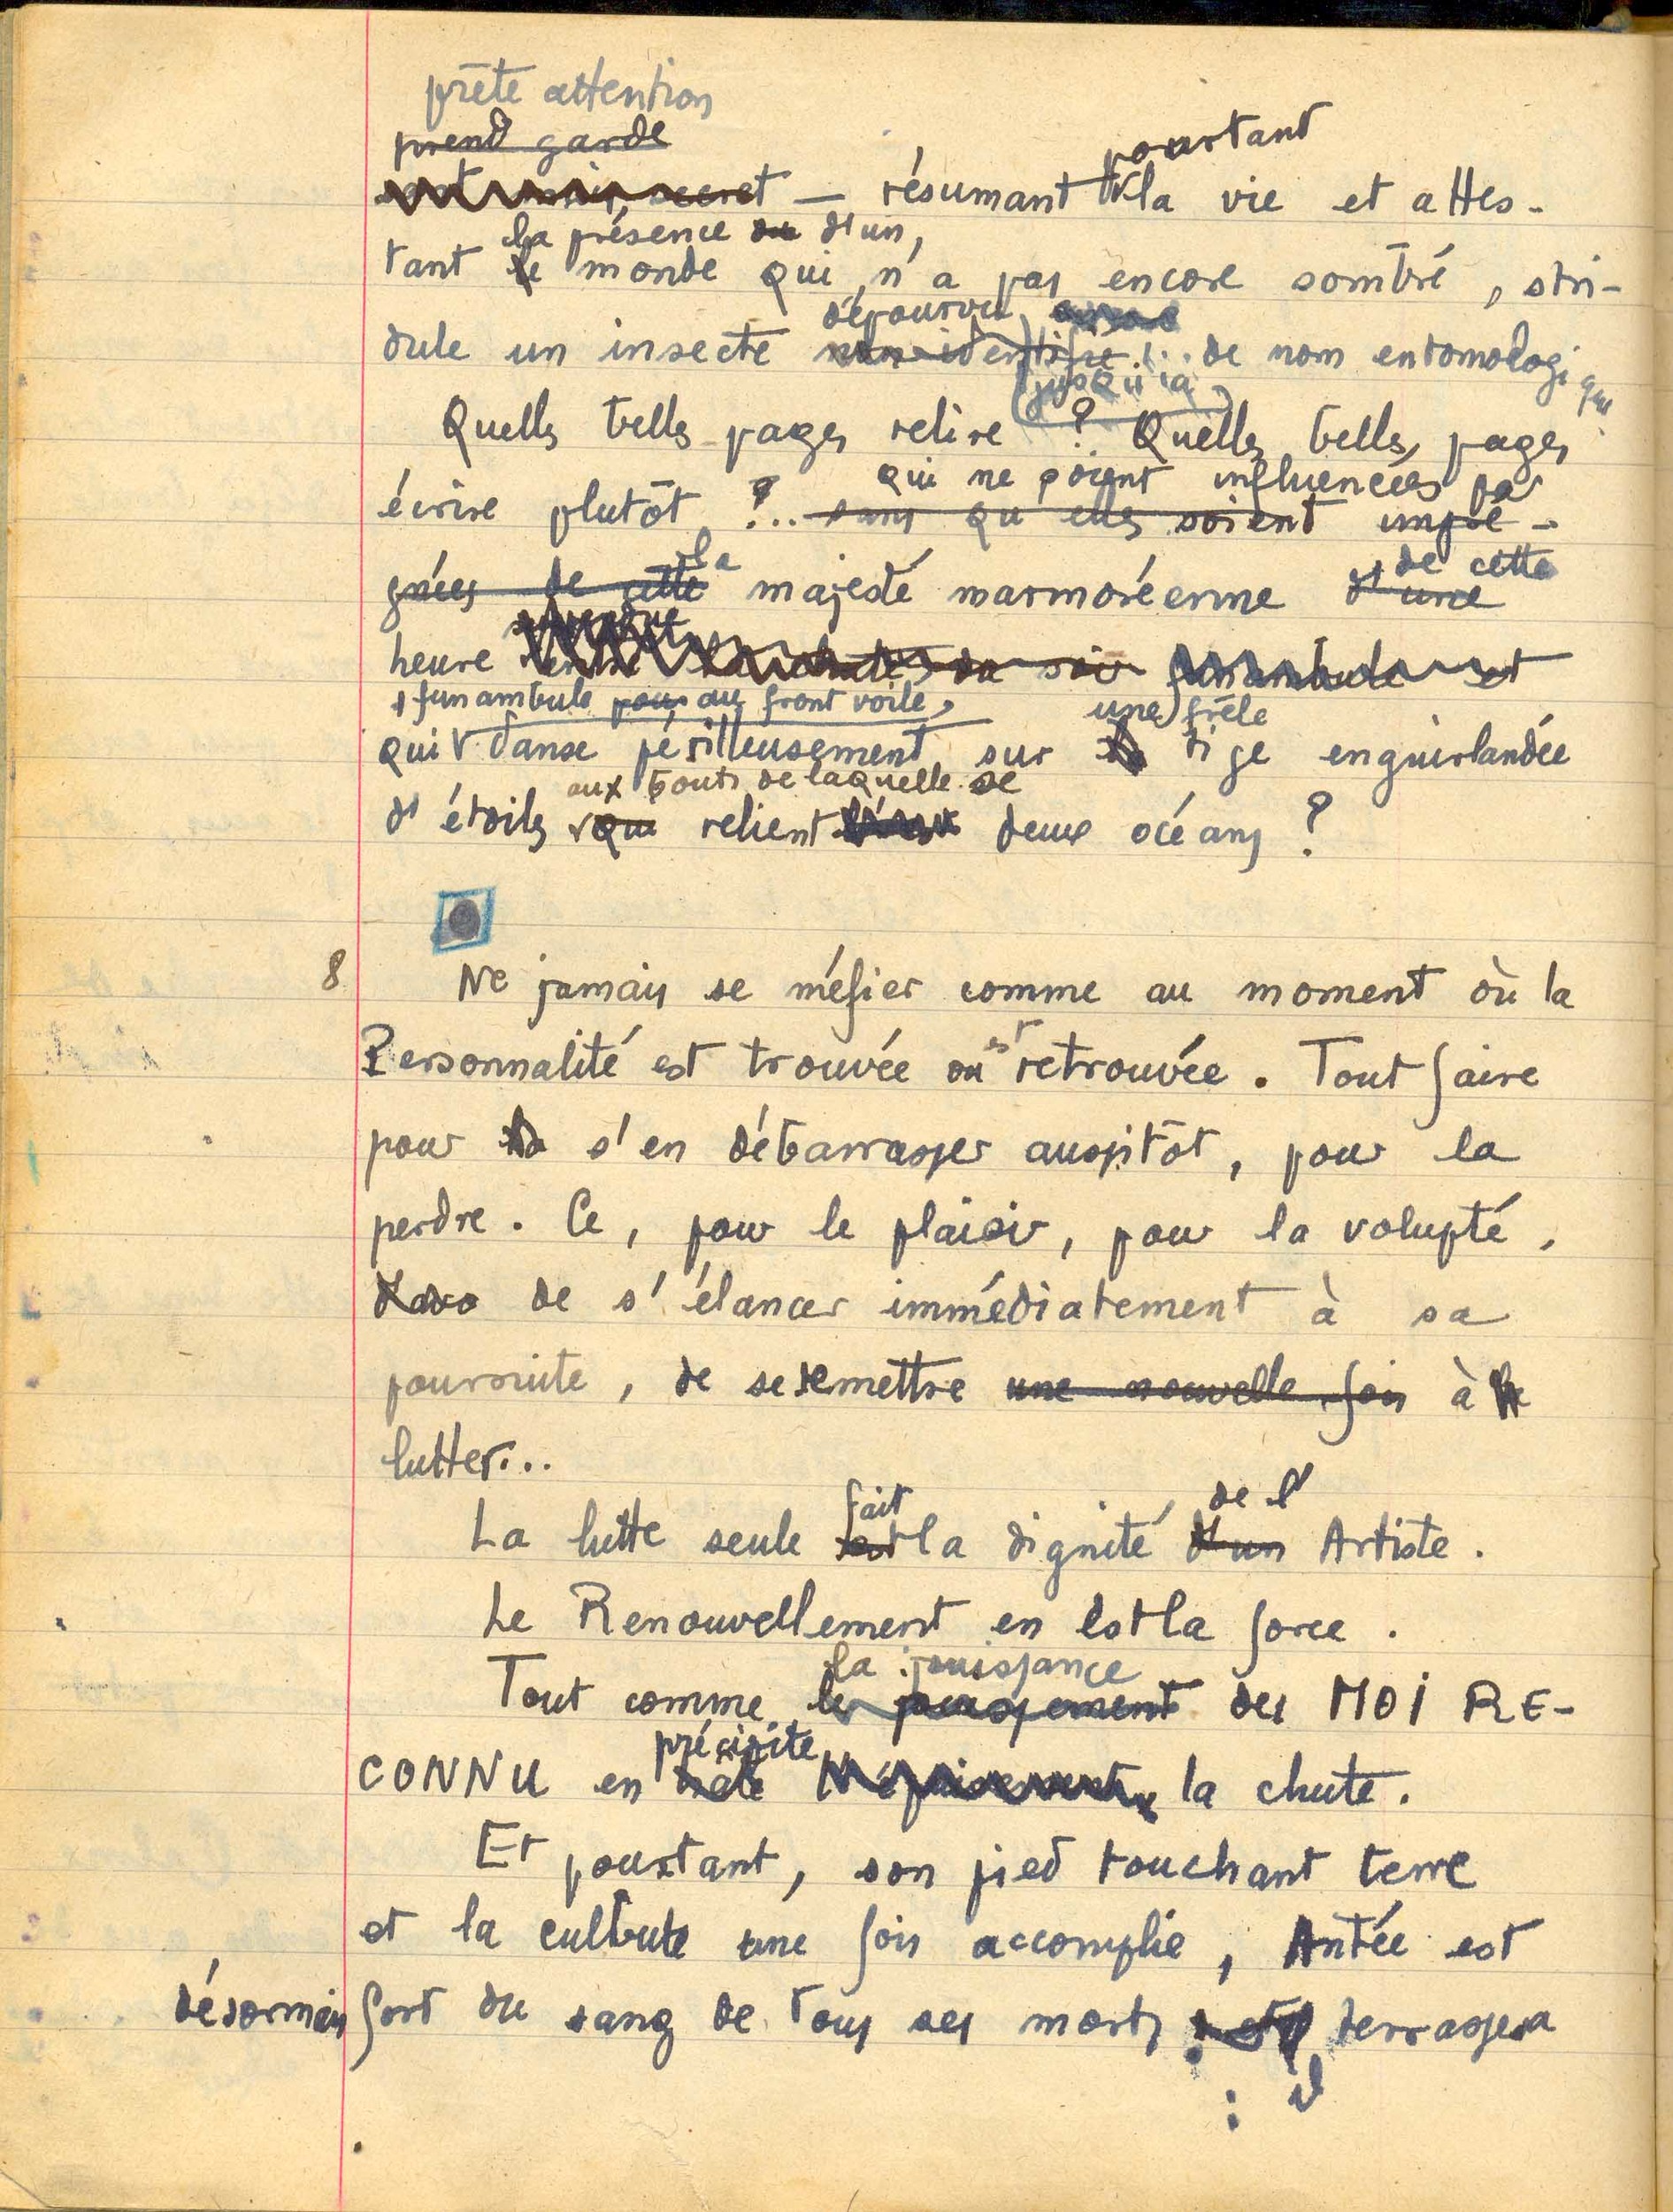 prête attention
prend garde
secret — résumant pourtant la vie et attes-
la présence du d'un
tant le monde qui n'a pas encore sombré, stri-
dépourvu
dule un insecte non identifié ... de nom entomologique
jusqu'ici
Quelles belles pages relire ? Quelles belles pages
qui ne soient influencées par
écrire plutôt ?.. sans qu'elles soient impré-
la de cette
gnées de cette majesté marmoréenne d'une
heure du soir funambule et
funambule pour au front voilé, une frêle
qui danse périlleusement sur la tige enguirlandée
aux bouts de laquelle se
d'étoiles qui relient deux océans ?
8 Ne jamais se méfier comme au moment où la
est
Personnalité est trouvée ou retrouvée. Tout faire
pour la s'en débarrasser aussitôt, pour la
perdre. Ce, pour le plaisir, pour la volupté,
de s'élancer immédiatement à sa
poursuite, de se remettre une nouvelle fois à
lutter...
fait de l'
La lutte seule est la dignité d'un Artiste.
Le Renouvellement en est la force.
la jouissance
Tout comme le des MOI RE-
précipite
CONNU en hâte la chute.
Et pourtant, son pied touchant terre
et la culbute une fois accomplie, Antée est
désormais fort du sang de tous ses morts terrassera
: il